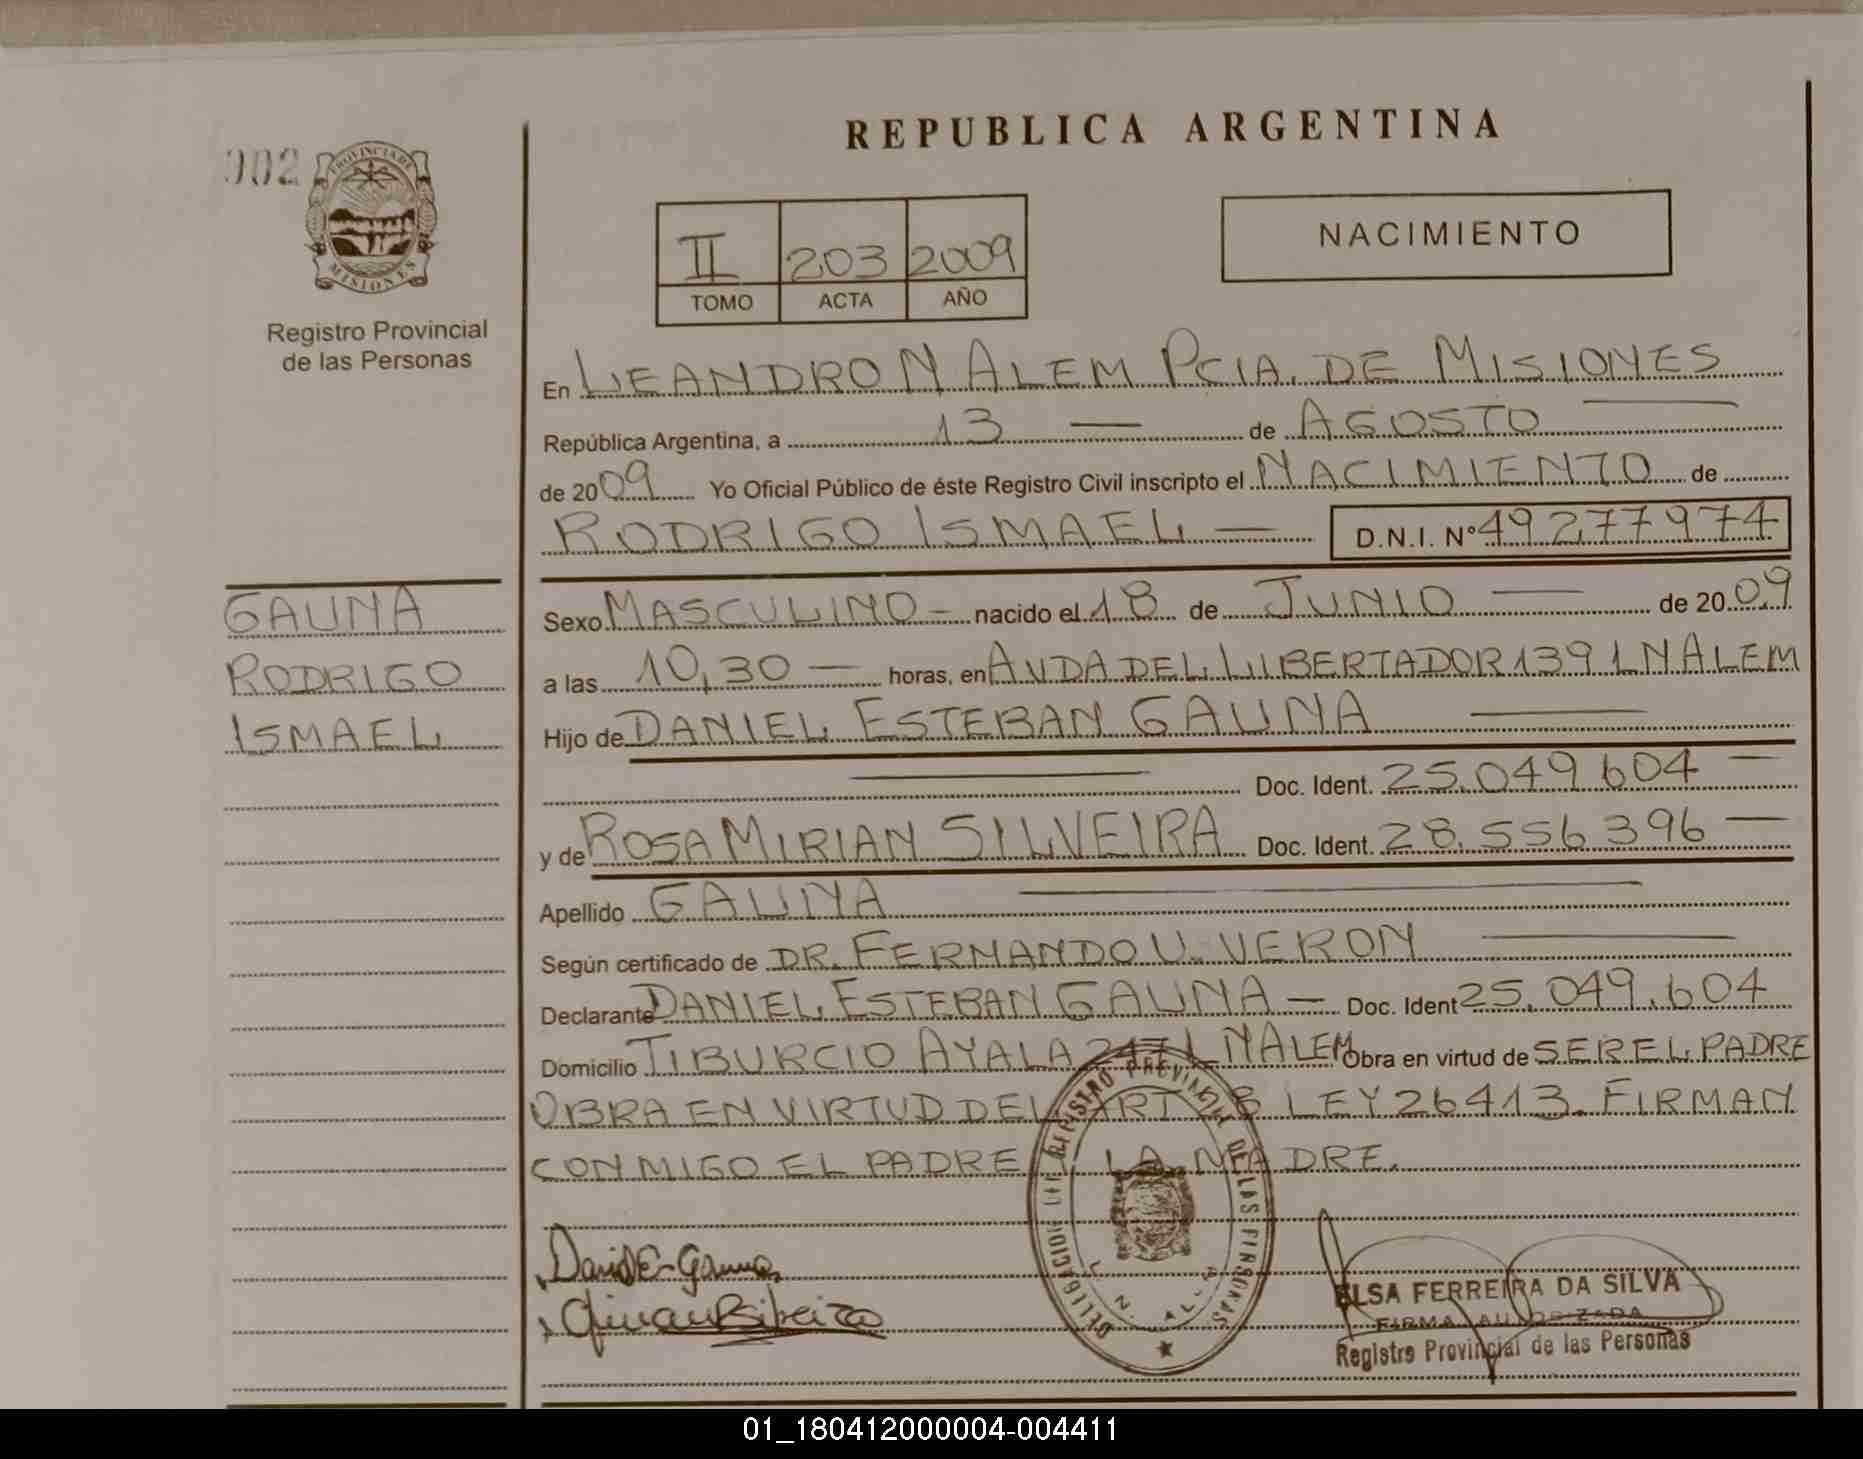 REPUBLICA ARGENTINA
002
PROVINCIA DE
MISIONES
Registro Provincial
de las Personas
II 203 2009
TOMO ACTA AÑO
NACIMIENTO
En LEANDRO N ALEM PCIA. DE MISIONES
República Argentina, a 13 — de AGOSTO —
de 2009 Yo Oficial Público de éste Registro Civil inscripto el NACIMIENTO de
RODRIGO ISMAEL — D.N.I. N° 49277974
GAUNA
RODRIGO
ISMAEL
Sexo MASCULINO - nacido el 18 de JUNIO — de 2009
a las 10,30 — horas, en AVDA DEL LIBERTADOR 139 L N ALEM
Hijo de DANIEL ESTEBAN GAUNA —
— Doc. Ident. 25.049.604 —
y de ROSA MIRIAN SILVEIRA Doc. Ident. 28.556.396 —
Apellido GAUNA —
Según certificado de DR. FERNANDO U. VERON —
Declarante DANIEL ESTEBAN GAUNA — Doc. Ident 25.049.604
Domicilio TIBURCIO AYALA L N ALEM Obra en virtud de SER EL PADRE
OBRA EN VIRTUD DEL ART LEY 26413. FIRMAN
CONMIGO EL PADRE LA MADRE.
DELEGACION DEL REGISTRO PROVINCIAL DE LAS PERSONAS
L. N. AL
ELSA FERREIRA DA SILVA
FIRMA AUTORIZADA
Registro Provincial de las Personas
01_180412000004-004411